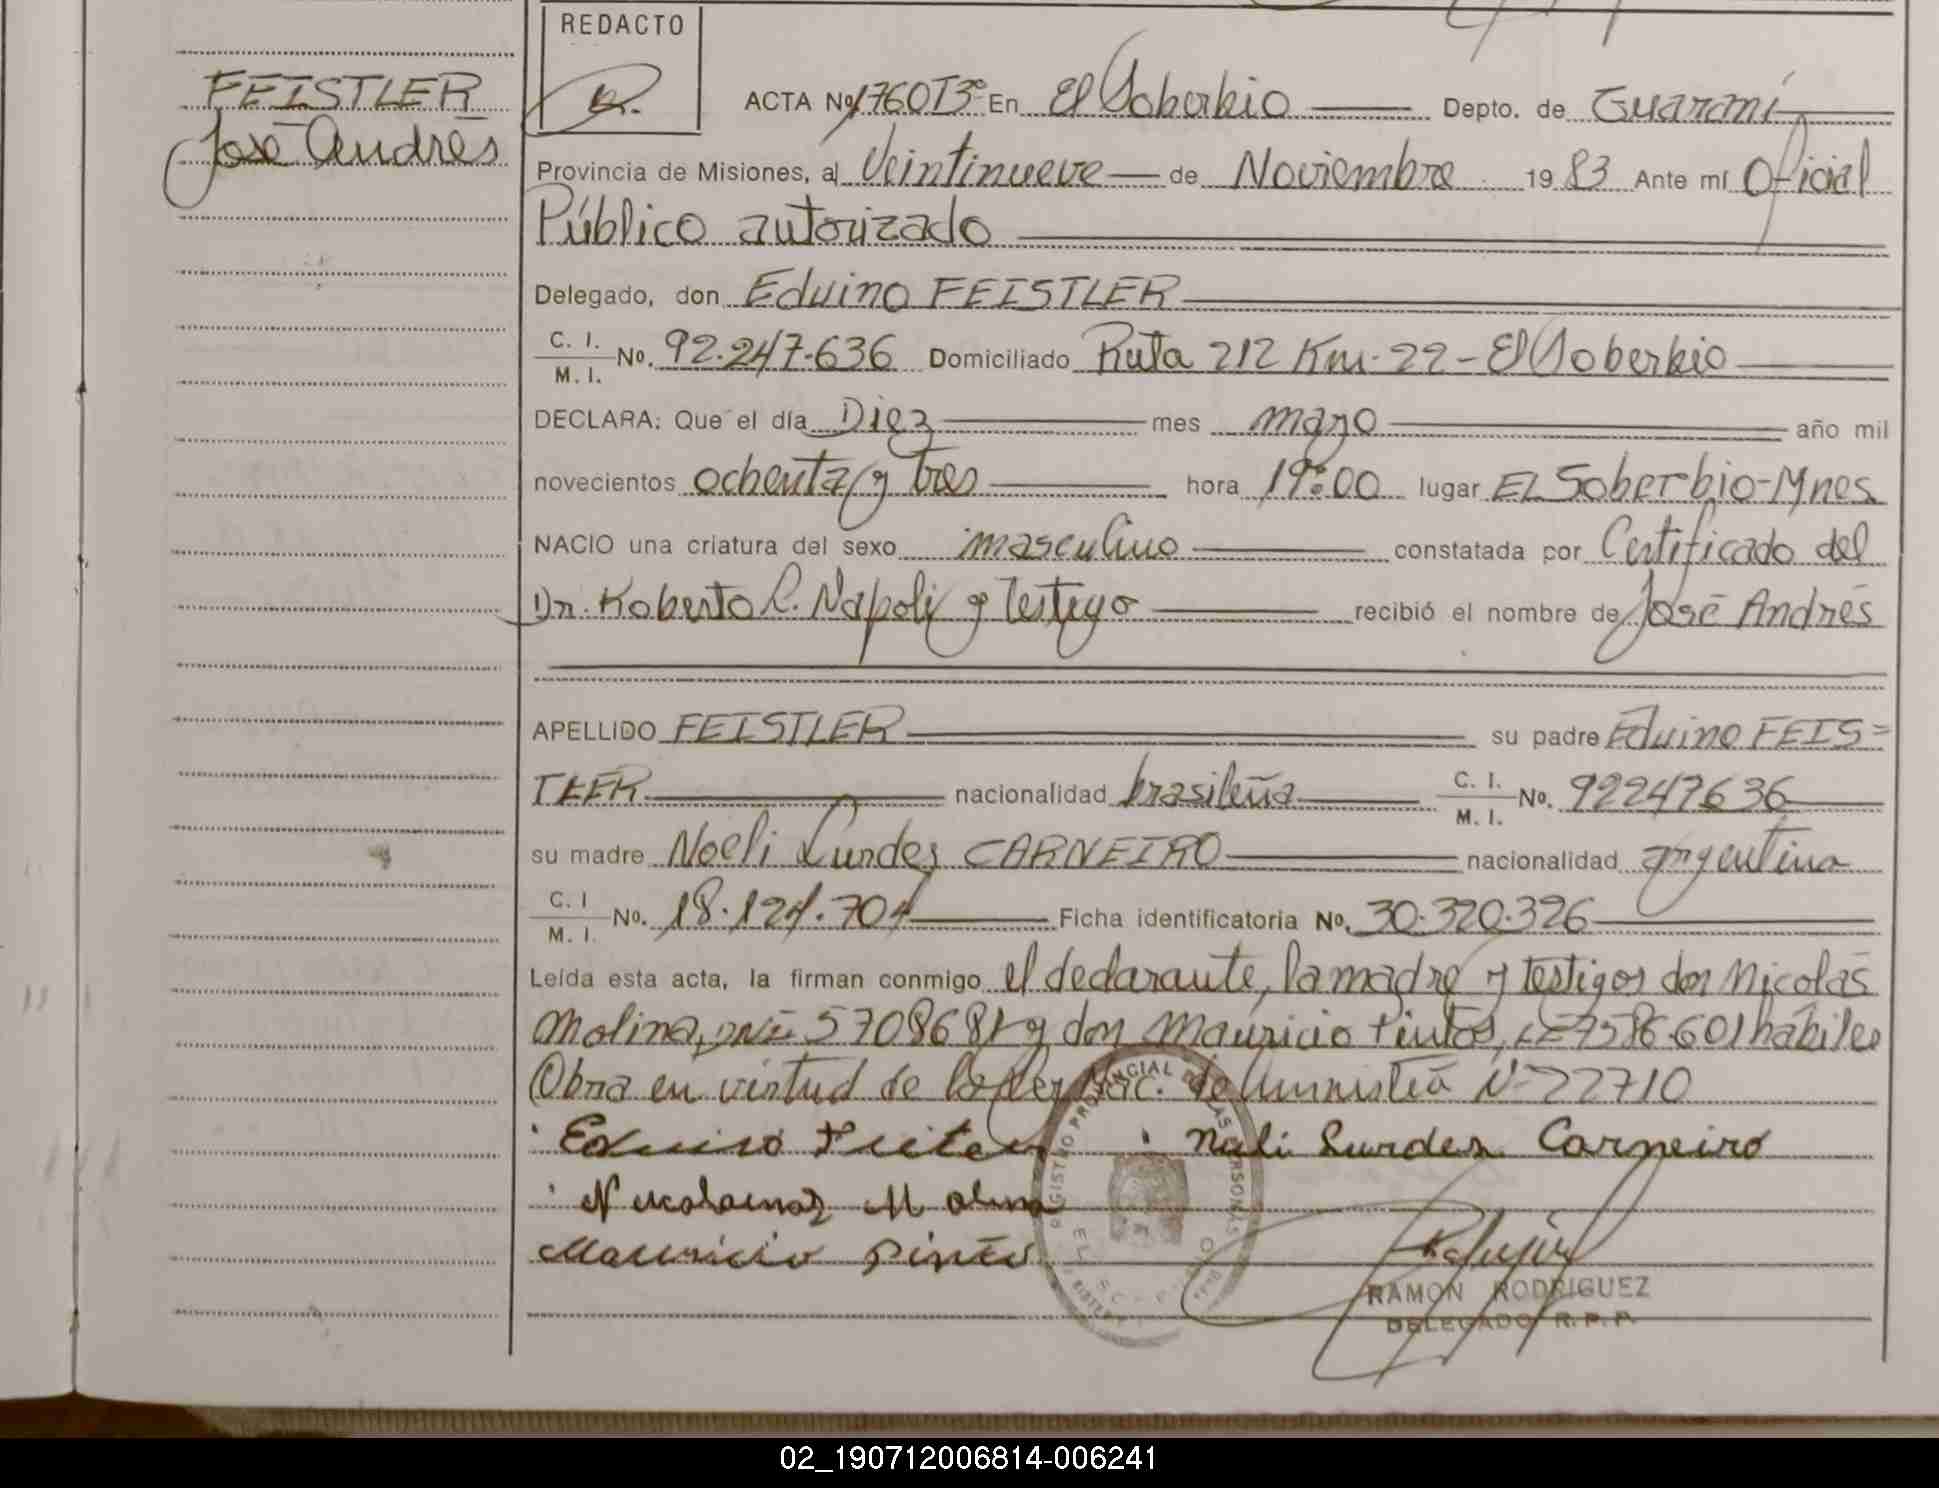 REDACTO
FEISTLER
José Andrés
ACTA Nº 1760T3º En El Soberbio Depto. de Guaraní
Provincia de Misiones, al Veintinueve de Noviembre 19 83 Ante mí Oficial
Público autorizado
Delegado, don Eduino FEISTLER
C. I. M. I. No. 92.247.636 Domiciliado Ruta 212 Km. 22 - El Soberbio
DECLARA: Que el día Diez mes mayo año mil
novecientos ochenta y tres hora 19:00 lugar EL Soberbio-Mnes
NACIO una criatura del sexo masculino constatada por Certificado del
Dr. Roberto L. Napoli y Testigo recibió el nombre de José Andrés
APELLIDO FEISTLER su padre Eduino FEIS=
TLER nacionalidad brasileña C. I. M. I. No. 92247636
su madre Noeli Lurdes CARNEIRO nacionalidad argentina
C. I M. I. No. 18.124.704 Ficha identificatoria No. 30.320.326
Leída esta acta, la firman conmigo el declarante, la madre y testigos don Nicolás
Molina, DNI 5708681 y don Mauricio Pintos, LE 7586.601 hábiles
Obra en virtud de la ley Nac. de Amnistía Nº 22710
Nali Lurdes Carneiro
Mauricio Pinto
REGISTRO PROVINCIAL DE LAS PERSONAS
EL SOBERBIO
RAMON RODRIGUEZ
DELEGADO R. P. P.
02_190712006814-006241